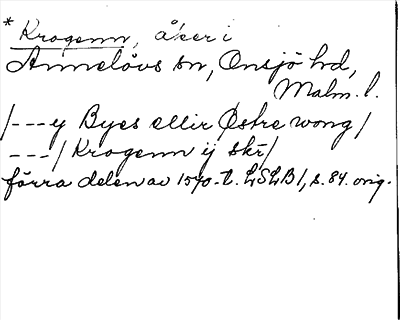 * Krogenn, åker i
Annelövs sn, Onsjö hd,
Malm. l.
/---y Byes ellir Østre wong/
---/ Krogenn ij skr/
förra delen av 1570-t. LSLB1, s. 84. orig.